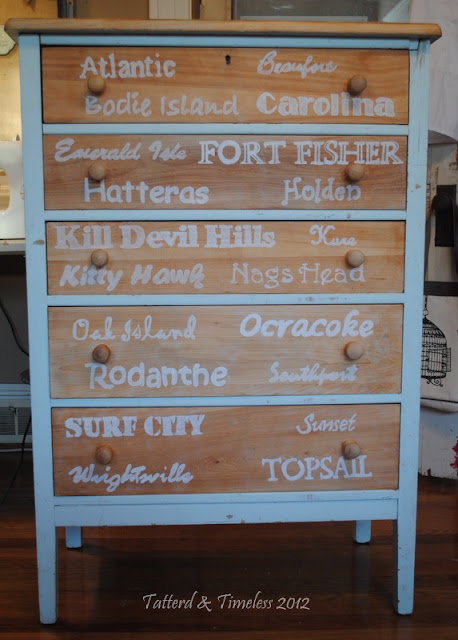 Atlantic Beaufort
Bodie Island Carolina
Emerald Isle FORT FISHER
Hatteras Holden
Kill Devil Hills Kure
Kitty Hawk Nags Head
Oak Island Ocracoke
Rodanthe Southport
SURF CITY Sunset
Wrightsville TOPSAIL
Tatterd & Timeless 2012